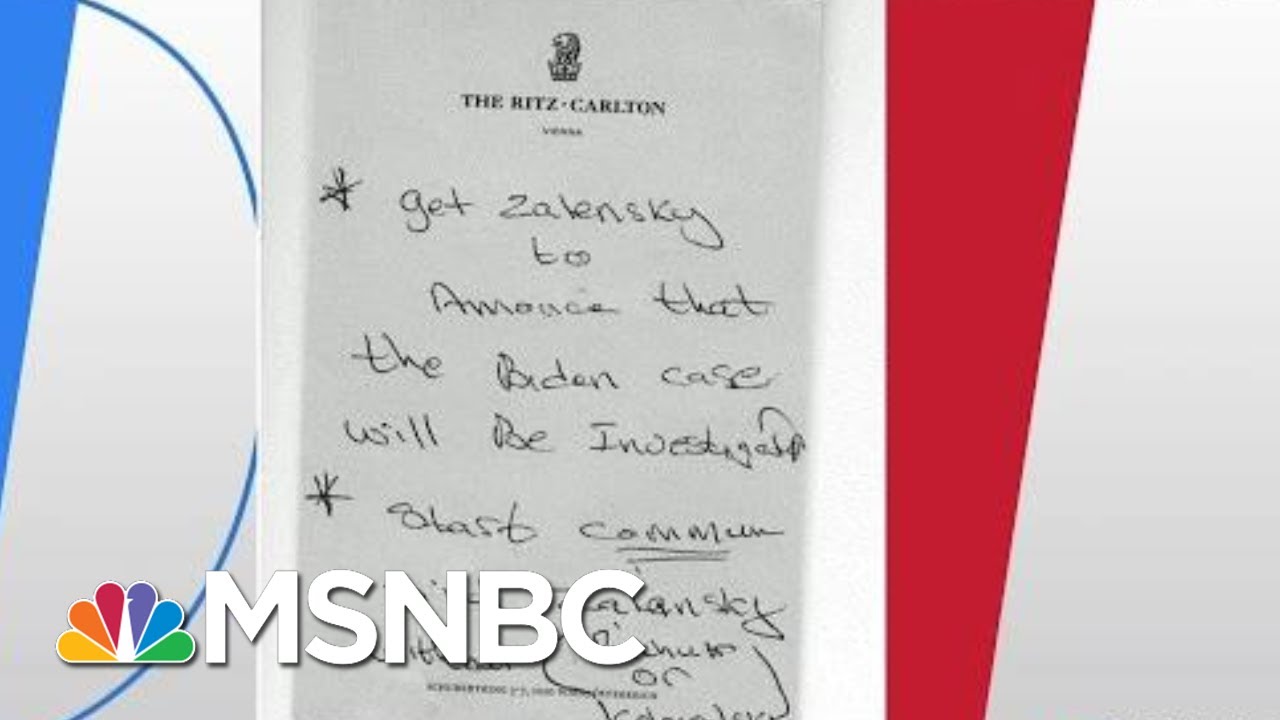 THE RITZ·CARLTON
VIENNA
* get Zalensky
to
Annouce that
the Biden case
will Be Investigated
* Start commun
Zalansky
or
MSNBC